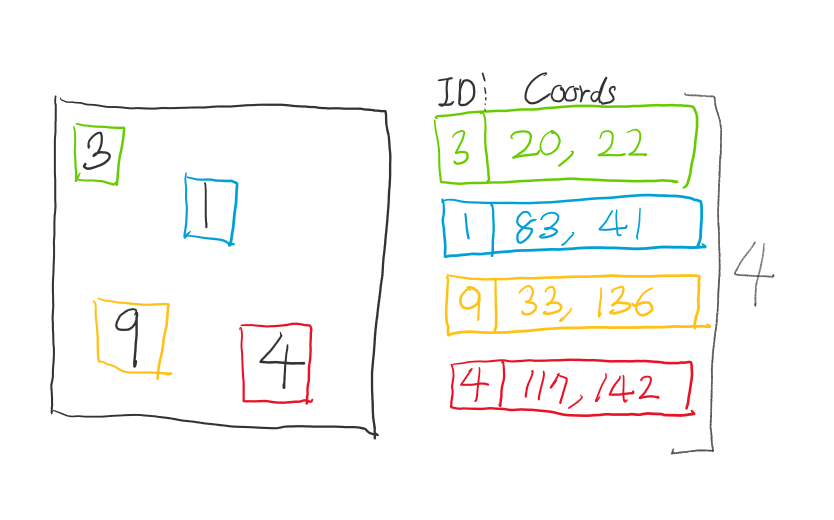 3
1
9
4
ID Coords
3 20, 22
1 83, 41
9 33, 136
4 117, 142
4